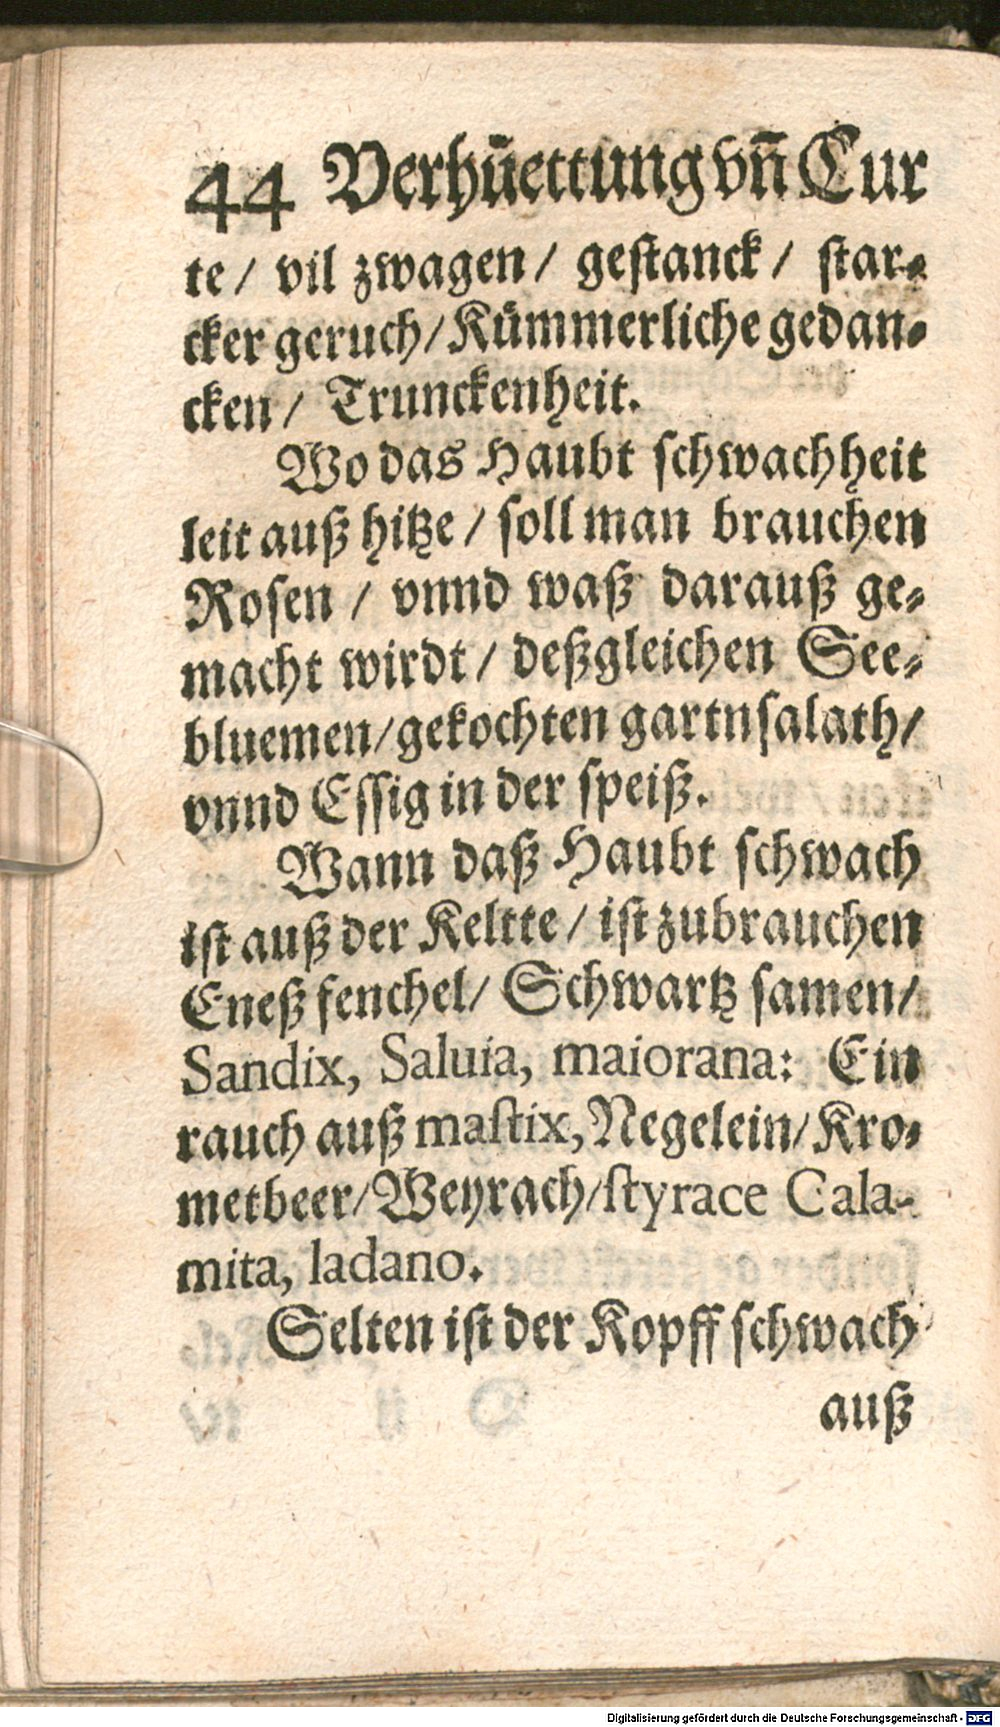 44 Verhüettung vñ Cur
te/ vil zwagen/ gestanck/ star⸗
cker geruch/ Kümmerliche gedan⸗
cken/ Trunckenheit.
Wo das Haubt schwachheit
leit auß hitze/ soll man brauchen
Rosen/ vnnd waß darauß ge⸗
macht wirdt/ deßgleichen See⸗
bluemen/ gekochten gartnsalath/
vnnd Essig in der speiß.
Wann daß Haubt schwach
ist auß der Keltte/ ist zubrauchen
Eneß fenchel/ Schwartz samen/
Sandix, Saluia, maiorana: Ein
rauch auß mastix, Negelein/ Kro⸗
metbeer/ Weyrach/ styrace Cala-
mita, ladano.
Selten ist der Kopff schwach
auß
Digitalisierung gefördert durch die Deutsche Forschungsgemeinschaft - DFG